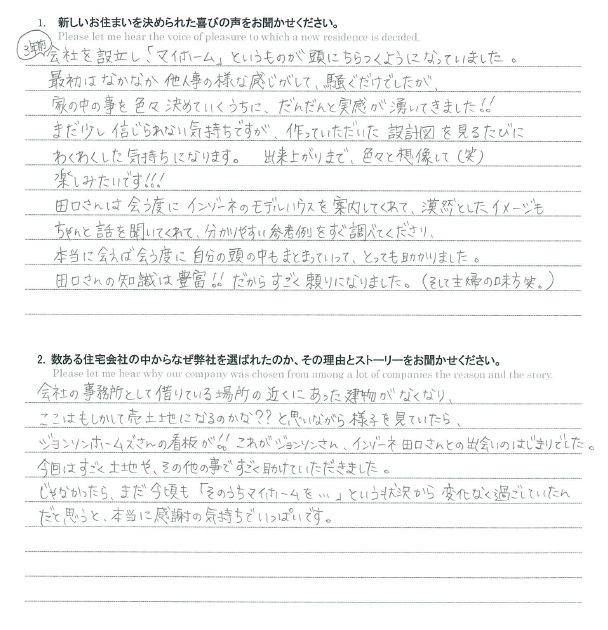 1. 新しいお住まいを決められた喜びの声をお聞かせください。
Please let me hear the voice of pleasure to which a new residence is decided.
3年前 会社を設立し、「マイホーム」というものが頭にちらつくようになっていました。
最初はなかなか他人事の様な感じがして、騒ぐだけでしたが、
家の中の事を色々決めていくうちに、だんだんと実感が湧いてきました!!
まだ少し信じられない気持ちですが、作っていただいた設計図を見るたびに
わくわくした気持ちになります。 出来上がりまで、色々と想像して(笑)
楽しみたいです!!!
田口さんは会う度にインゾーネのモデルハウスを案内してくれて、漠然としたイメージも
ちゃんと話を聞いてくれて、分かりやすい参考例をすぐ調べてくださり、
本当に会えば会う度に自分の頭の中もまとまっていって、とっても助かりました。
田口さんの知識は豊富!! だからすごく頼りになりました。(そして主婦の味方笑。)
2. 数ある住宅会社の中からなぜ弊社を選ばれたのか、その理由とストーリーをお聞かせください。
Please let me hear why our company was chosen from among a lot of companies the reason and the story.
会社の事務所として借りている場所の近くにあった建物がなくなり、
ここはもしかして売土地になるのかな?? と思いながら様子を見ていたら、
ジョンソンホームズさんの看板が!! これがジョンソンさん、インゾーネ田口さんとの出会いのはじまりでした。
今回はすごく土地や、その他の事ですごく助けていただきました。
じゃなかったら、まだ今頃も「そのうちマイホームを…」という状況から変化なく過ごしていたん
だと思うと、本当に感謝の気持ちでいっぱいです。